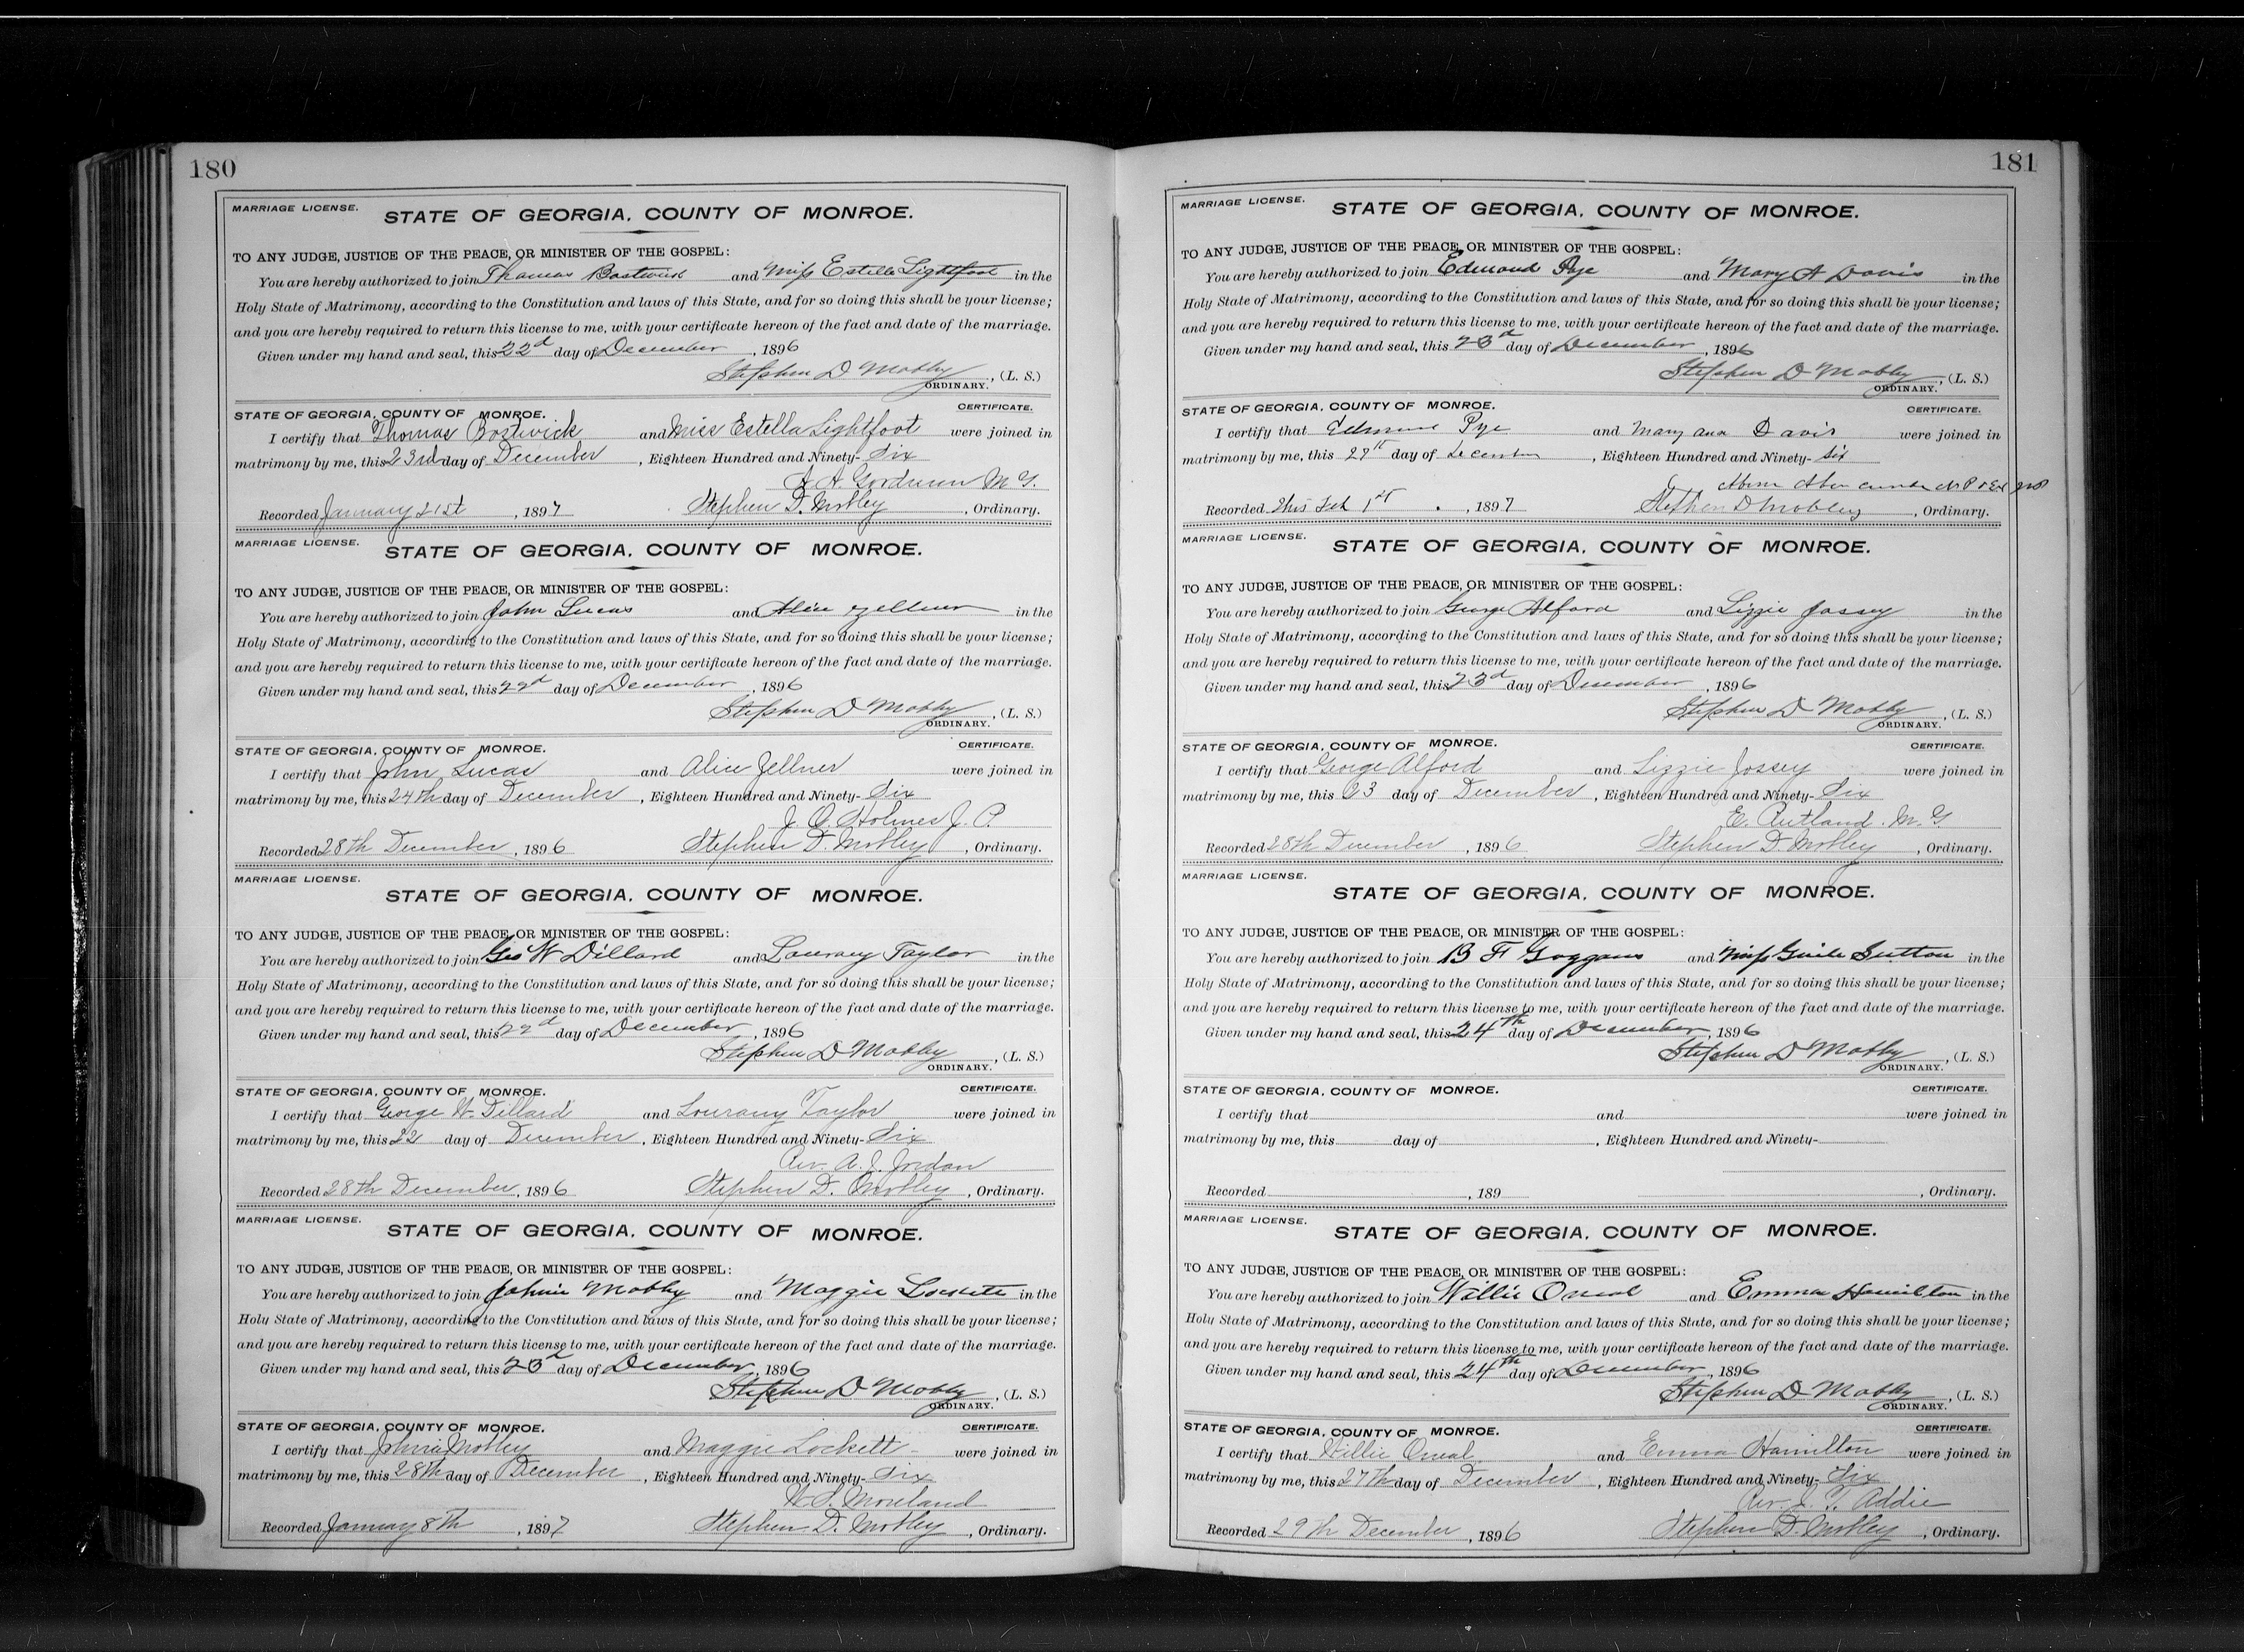 180
MARRIAGE LICENSE.
STATE OF GEORGIA, COUNTY OF MONROE.
TO ANY JUDGE, JUSTICE OF THE PEACE, OR MINISTER OF THE GOSPEL:
You are hereby authorized to join Thomas Bostwick and Miss Estella Lightfoot in the
Holy State of Matrimony, according to the Constitution and laws of this State, and for so doing this shall be your license;
and you are hereby required to return this license to me, with your certificate hereon of the fact and date of the marriage.
Given under my hand and seal, this 22d day of December, 1896
Stephen D Mobley, (L. S.)
ORDINARY.
STATE OF GEORGIA, COUNTY OF MONROE. CERTIFICATE.
I certify that Thomas Bostwick and Miss Estella Lightfoot were joined in
matrimony by me, this 23rd day of December, Eighteen Hundred and Ninety-Six
A. M. G.
Recorded January 21st, 1897 Stephen D. Mobley, Ordinary.
MARRIAGE LICENSE.
STATE OF GEORGIA, COUNTY OF MONROE.
TO ANY JUDGE, JUSTICE OF THE PEACE, OR MINISTER OF THE GOSPEL:
You are hereby authorized to join John Lucas and Alice Zellner in the
Holy State of Matrimony, according to the Constitution and laws of this State, and for so doing this shall be your license;
and you are hereby required to return this license to me, with your certificate hereon of the fact and date of the marriage.
Given under my hand and seal, this 22d day of December, 1896
Stephen D Mobley, (L. S.)
ORDINARY.
STATE OF GEORGIA, COUNTY OF MONROE. CERTIFICATE.
I certify that John Lucas and Alice Zellner were joined in
matrimony by me, this 24th day of December, Eighteen Hundred and Ninety-Six
J. O. Holmes J. P.
Recorded 28th December, 1896 Stephen D. Mobley, Ordinary.
MARRIAGE LICENSE.
STATE OF GEORGIA, COUNTY OF MONROE.
TO ANY JUDGE, JUSTICE OF THE PEACE, OR MINISTER OF THE GOSPEL:
You are hereby authorized to join Geo W Dillard and Lourany Taylor in the
Holy State of Matrimony, according to the Constitution and laws of this State, and for so doing this shall be your license;
and you are hereby required to return this license to me, with your certificate hereon of the fact and date of the marriage.
Given under my hand and seal, this 22d day of December, 1896
Stephen D Mobley, (L. S.)
ORDINARY.
STATE OF GEORGIA, COUNTY OF MONROE. CERTIFICATE.
I certify that George W. Dillard and Lourany Taylor were joined in
matrimony by me, this 22 day of December, Eighteen Hundred and Ninety-Six
Rev. A. J. Jordan
Recorded 28th December, 1896 Stephen D. Mobley, Ordinary.
MARRIAGE LICENSE.
STATE OF GEORGIA, COUNTY OF MONROE.
TO ANY JUDGE, JUSTICE OF THE PEACE, OR MINISTER OF THE GOSPEL:
You are hereby authorized to join Johnie Mobley and Maggie Lockett in the
Holy State of Matrimony, according to the Constitution and laws of this State, and for so doing this shall be your license;
and you are hereby required to return this license to me, with your certificate hereon of the fact and date of the marriage.
Given under my hand and seal, this 23d day of December, 1896
Stephen D Mobley, (L. S.)
ORDINARY.
STATE OF GEORGIA, COUNTY OF MONROE. CERTIFICATE.
I certify that Johnie Mobley and Maggie Lockett were joined in
matrimony by me, this 28th day of December, Eighteen Hundred and Ninety-Six
W. S. Moreland
Recorded January 8th, 1897 Stephen D. Mobley, Ordinary.
181
MARRIAGE LICENSE.
STATE OF GEORGIA, COUNTY OF MONROE.
TO ANY JUDGE, JUSTICE OF THE PEACE, OR MINISTER OF THE GOSPEL:
You are hereby authorized to join Edmond Pye and Mary A Davis in the
Holy State of Matrimony, according to the Constitution and laws of this State, and for so doing this shall be your license;
and you are hereby required to return this license to me, with your certificate hereon of the fact and date of the marriage.
Given under my hand and seal, this 23d day of December, 1896
Stephen D Mobley, (L. S.)
ORDINARY.
STATE OF GEORGIA, COUNTY OF MONROE. CERTIFICATE.
I certify that Edmond Pye and Mary Ann Davis were joined in
matrimony by me, this 27th day of December, Eighteen Hundred and Ninety-Six
Recorded This Feb 1st, 1897 Stephen D Mobley, Ordinary.
MARRIAGE LICENSE.
STATE OF GEORGIA, COUNTY OF MONROE.
TO ANY JUDGE, JUSTICE OF THE PEACE, OR MINISTER OF THE GOSPEL:
You are hereby authorized to join George Alford and Lizzie Jossey in the
Holy State of Matrimony, according to the Constitution and laws of this State, and for so doing this shall be your license;
and you are hereby required to return this license to me, with your certificate hereon of the fact and date of the marriage.
Given under my hand and seal, this 23d day of December, 1896
Stephen D Mobley, (L. S.)
ORDINARY.
STATE OF GEORGIA, COUNTY OF MONROE. CERTIFICATE.
I certify that George Alford and Lizzie Jossey were joined in
matrimony by me, this 23 day of December, Eighteen Hundred and Ninety-Six
E. Rutland. M. G.
Recorded 28th December, 1896 Stephen D. Mobley, Ordinary.
MARRIAGE LICENSE.
STATE OF GEORGIA, COUNTY OF MONROE.
TO ANY JUDGE, JUSTICE OF THE PEACE, OR MINISTER OF THE GOSPEL:
You are hereby authorized to join B F Goggans and Miss Sutton in the
Holy State of Matrimony, according to the Constitution and laws of this State, and for so doing this shall be your license;
and you are hereby required to return this license to me, with your certificate hereon of the fact and date of the marriage.
Given under my hand and seal, this 24th day of December, 1896
Stephen D Mobley, (L. S.)
ORDINARY.
STATE OF GEORGIA, COUNTY OF MONROE. CERTIFICATE.
I certify that and were joined in
matrimony by me, this day of , Eighteen Hundred and Ninety-
Recorded , 189 , Ordinary.
MARRIAGE LICENSE.
STATE OF GEORGIA, COUNTY OF MONROE.
TO ANY JUDGE, JUSTICE OF THE PEACE, OR MINISTER OF THE GOSPEL:
You are hereby authorized to join Willie Oneal and Emma Hamilton in the
Holy State of Matrimony, according to the Constitution and laws of this State, and for so doing this shall be your license;
and you are hereby required to return this license to me, with your certificate hereon of the fact and date of the marriage.
Given under my hand and seal, this 24th day of December, 1896
Stephen D Mobley, (L. S.)
ORDINARY.
STATE OF GEORGIA, COUNTY OF MONROE. CERTIFICATE.
I certify that Willie Oneal and Emma Hamilton were joined in
matrimony by me, this 27th day of December, Eighteen Hundred and Ninety-Six
Rev. J. T. Addie
Recorded 29th December, 1896 Stephen D. Mobley, Ordinary.